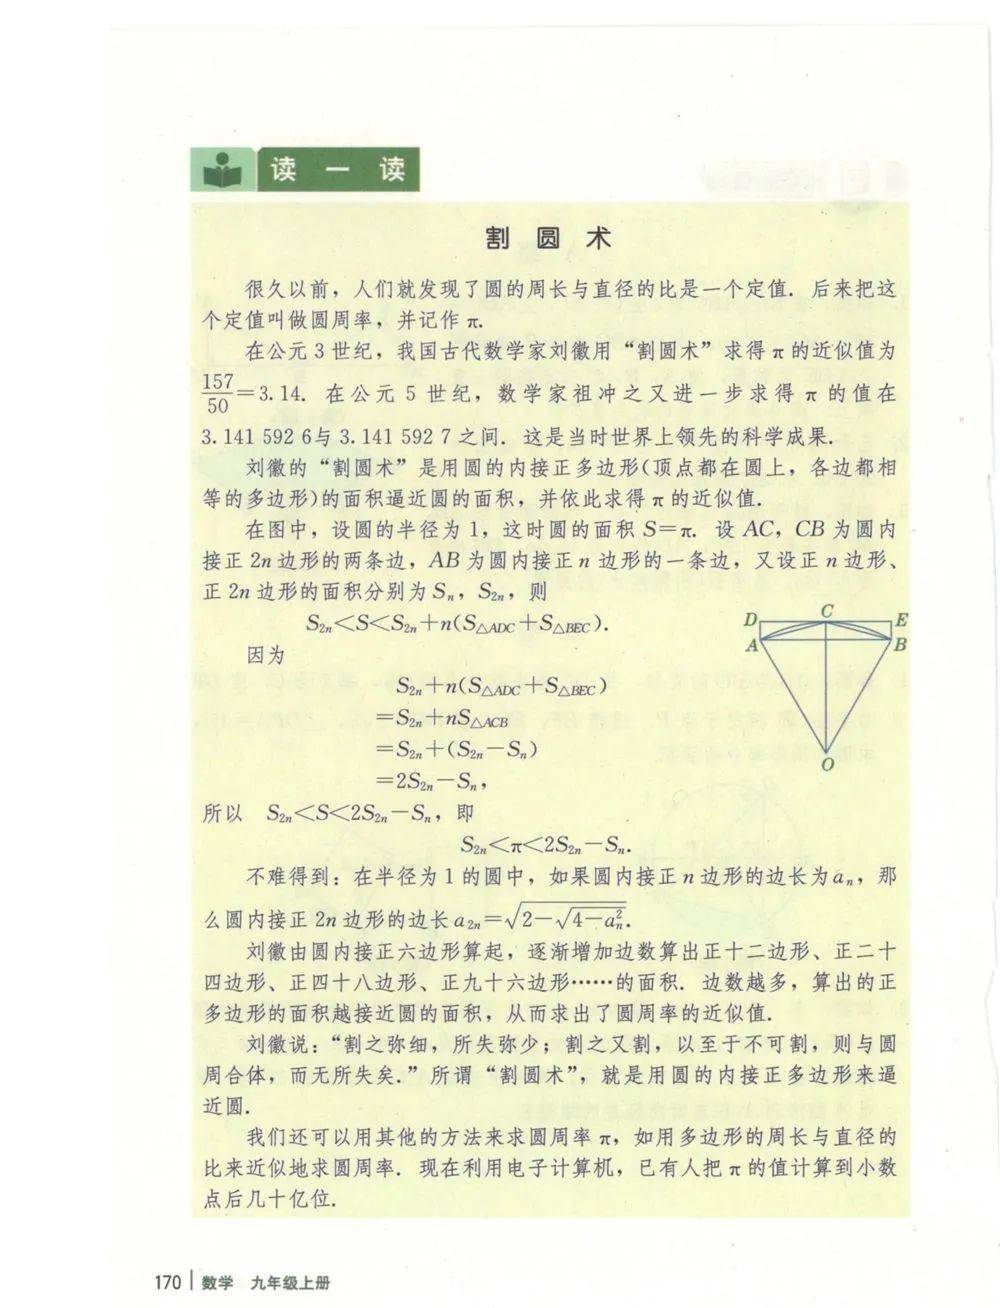 读 一 读
割 圆 术
很久以前，人们就发现了圆的周长与直径的比是一个定值．后来把这
个定值叫做圆周率，并记作 π.
在公元 3 世纪，我国古代数学家刘徽用“割圆术”求得 π 的近似值为
157/50＝3.14．在公元 5 世纪，数学家祖冲之又进一步求得 π 的值在
3.141 592 6与 3.141 592 7 之间．这是当时世界上领先的科学成果．
刘徽的“割圆术”是用圆的内接正多边形(顶点都在圆上，各边都相
等的多边形)的面积逼近圆的面积，并依此求得 π 的近似值．
在图中，设圆的半径为 1，这时圆的面积 S＝π. 设 AC，CB 为圆内
接正 2n 边形的两条边，AB 为圆内接正 n 边形的一条边，又设正 n 边形、
正 2n 边形的面积分别为 Sₙ，S₂ₙ，则
S₂ₙ＜S＜S₂ₙ＋n(S△ADC＋S△BEC).
因为
S₂ₙ＋n(S△ADC＋S△BEC)
＝S₂ₙ＋nS△ACB
＝S₂ₙ＋(S₂ₙ－Sₙ)
＝2S₂ₙ－Sₙ，
D C E
A B
O
所以 S₂ₙ＜S＜2S₂ₙ－Sₙ，即
S₂ₙ＜π＜2S₂ₙ－Sₙ.
不难得到：在半径为 1 的圆中，如果圆内接正 n 边形的边长为 aₙ，那
么圆内接正 2n 边形的边长 a₂ₙ＝√(2－√(4－aₙ²)).
刘徽由圆内接正六边形算起，逐渐增加边数算出正十二边形、正二十
四边形、正四十八边形、正九十六边形……的面积．边数越多，算出的正
多边形的面积越接近圆的面积，从而求出了圆周率的近似值．
刘徽说：“割之弥细，所失弥少；割之又割，以至于不可割，则与圆
周合体，而无所失矣．”所谓“割圆术”，就是用圆的内接正多边形来逼
近圆．
我们还可以用其他的方法来求圆周率 π，如用多边形的周长与直径的
比来近似地求圆周率．现在利用电子计算机，已有人把 π 的值计算到小数
点后几十亿位．
170 数学 九年级上册